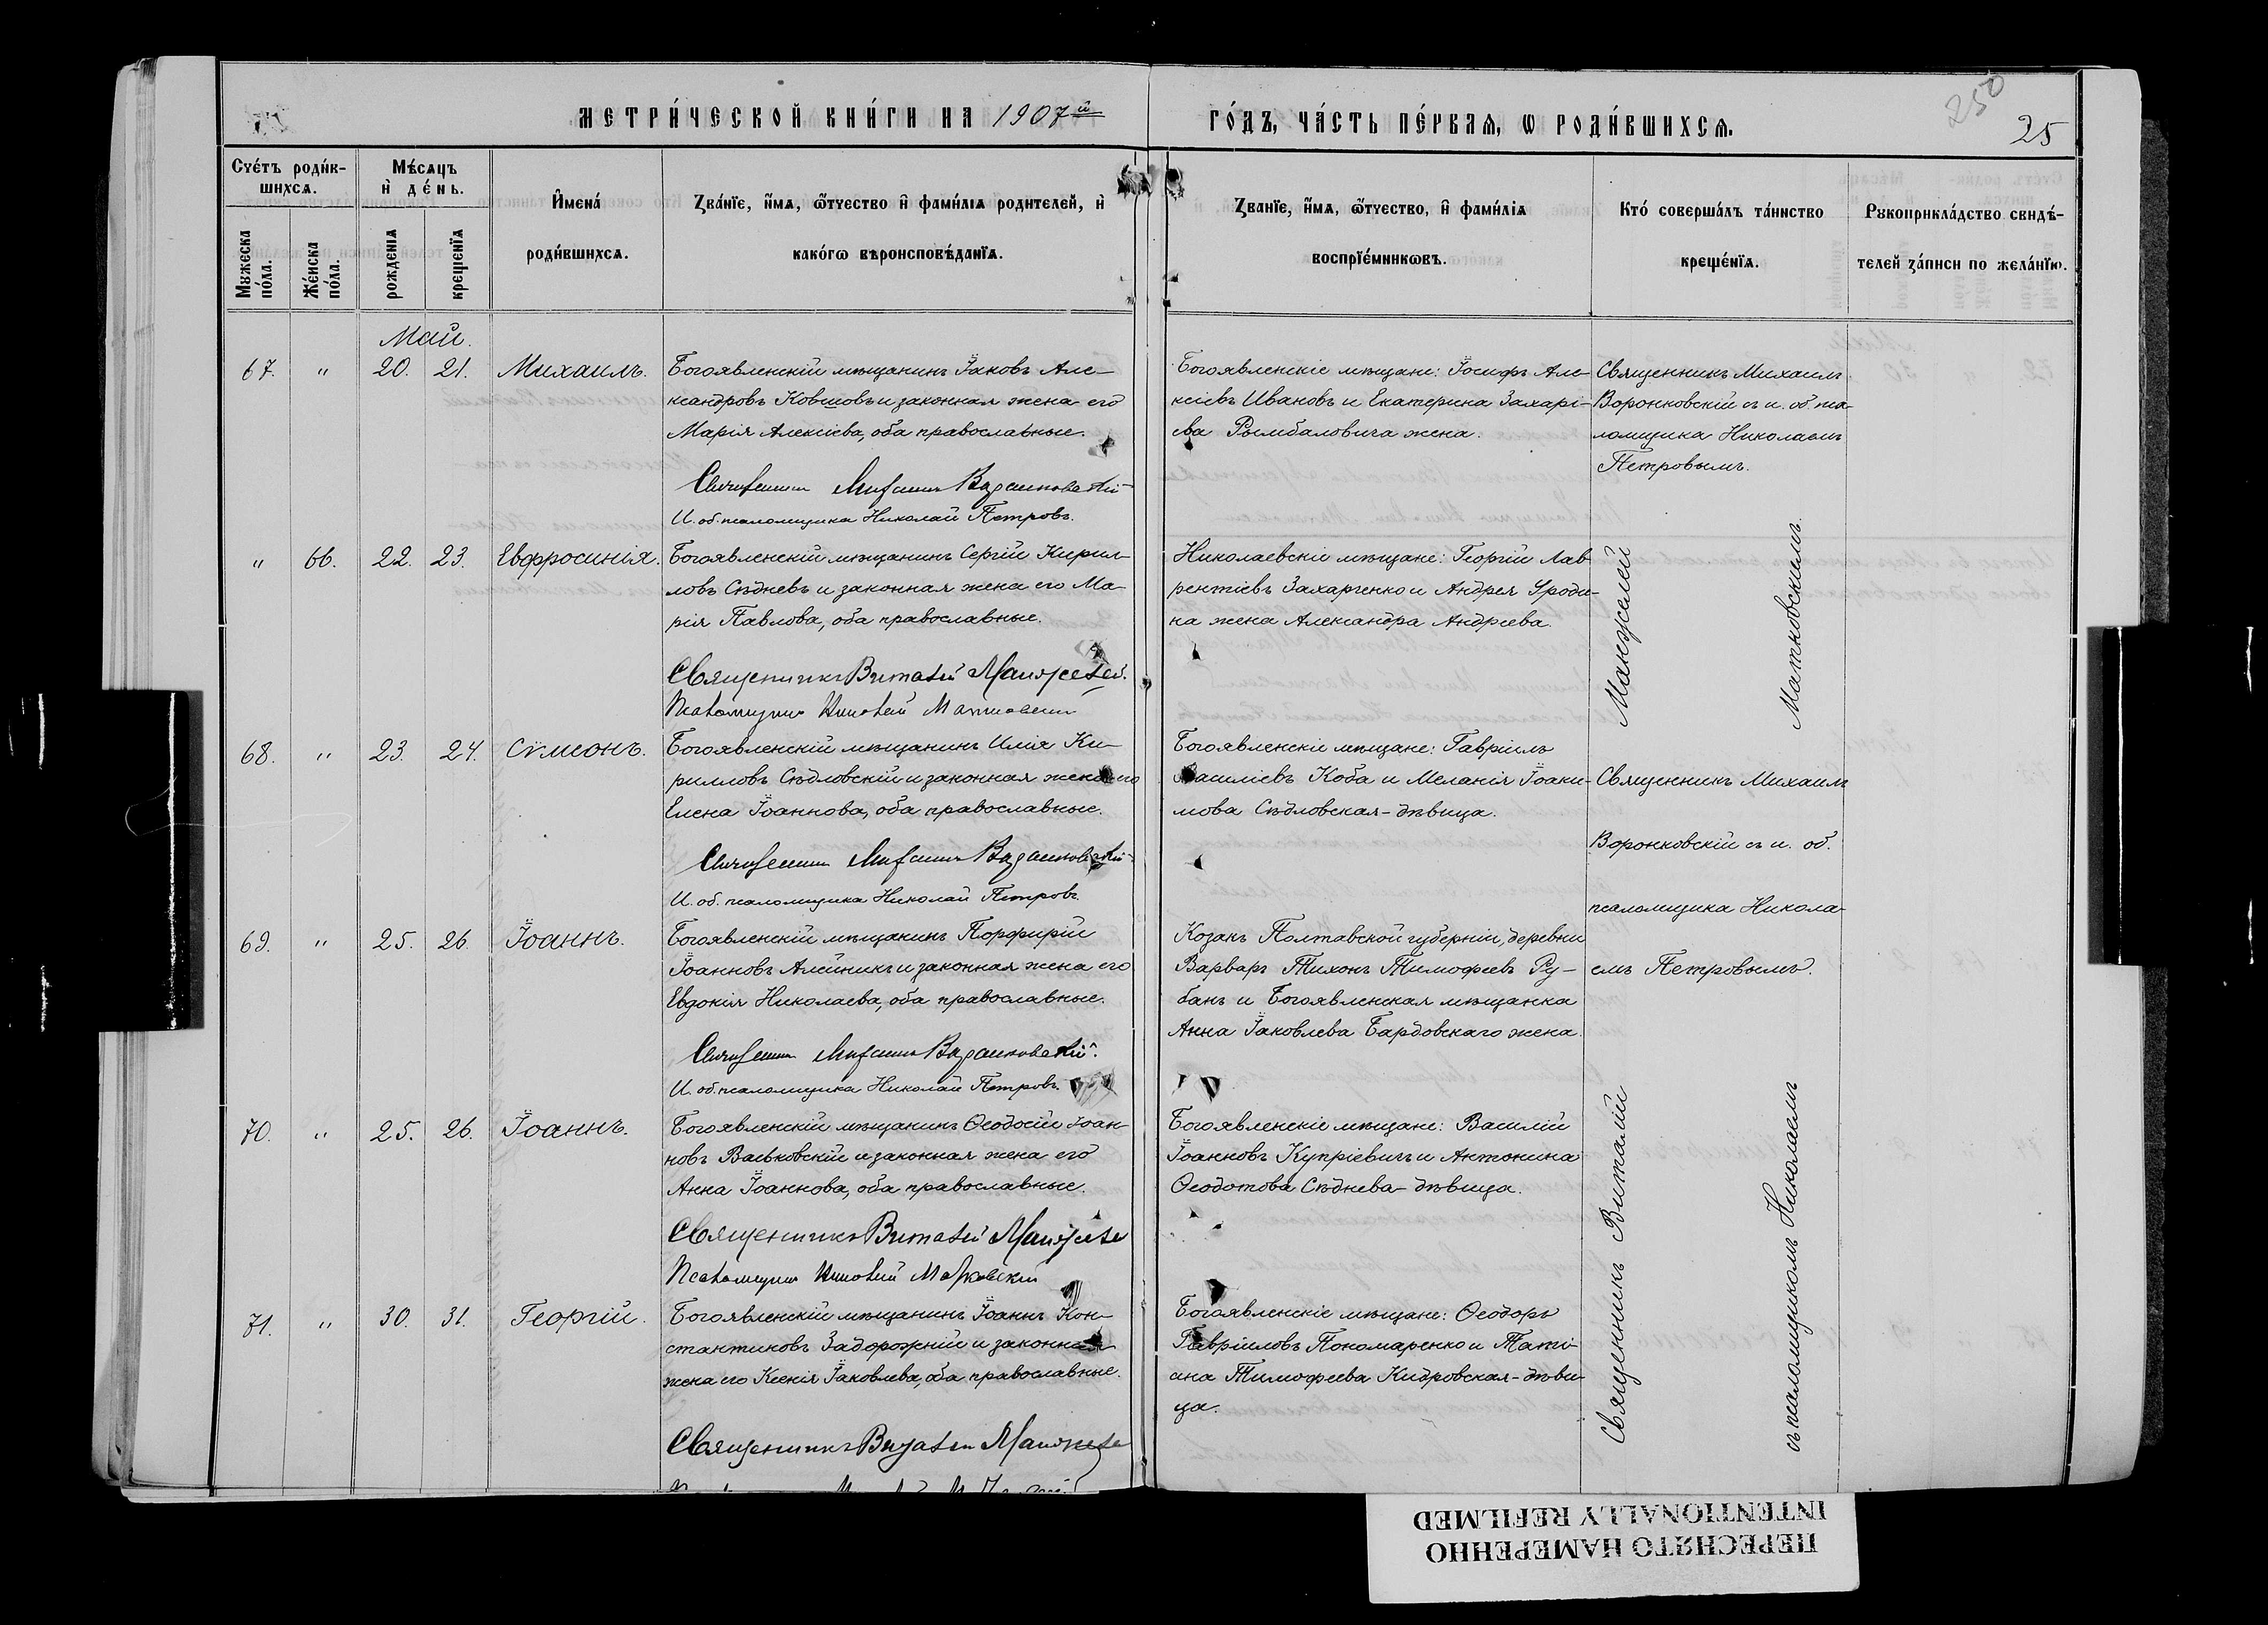 МЕТРИ́ЧЕСКОЙ КНИ́ГИ НА 1907й
ГО́ДЪ, ЧА́СТЬ ПЕ́РВАѦ, Ѡ РОДИ́ВШИХСѦ.
250
25
Сче́тъ роди́в-
шихсѧ.
Мѣ́сѧцъ
и҆ де́нь.
Мꙋжеска
по́ла.
Же́нска
по́ла.
рожденіѧ
креще́нїѧ
И҆мена́
роди́вшихсѧ.
Зва́нїе, и҆́мѧ, ѻ҆́тчество и҆ фамн́лїѧ родителей, и҆
како́гѡ вѣроисповѣ́данїѧ.
Зва́нїе, и҆́мѧ, ѻ҆́тчество, и҆ фами́лїѧ
воспрїе́мникѡвъ.
Кто́ соверша́лъ та́инство
креще́нїѧ.
Рꙋкоприкла́дство свидѣ́-
телей за́писи по жела́нїю.
Май.
67. " 20. 21. Михаилъ.
Богоявленскій мѣщанинъ Іаковъ Але-
ксандровъ Ковшовъ и законная жена его
Марія Алексіева, оба православные.
Священникъ Михаилъ Воронковскій
И. об. псаломщика Николай Петровъ.
Богоявленскіе мѣщане: Іосифъ Але-
ксіевъ Ивановъ и Екатерина Захарі-
ева Рымбаловича жена.
Священникъ Михаилъ
Воронковскій съ и. об. пса-
ломщика Николаемъ
Петровымъ.
" 66. 22. 23. Евфросинія.
Богоявленскій мѣщанинъ Сергій Кирил-
ловъ Сѣдневъ и законная жена его Ма-
рія Павлова, оба православные.
Священникъ Виталій Манжелей.
Псаломщикъ Николай Матковскій
Николаевскіе мѣщане: Георгій Лав-
рентіевъ Захарченко и Андрея Уроди-
на жена Александра Андреева.
68. " 23. 24. Сѵмеонъ.
Богоявленскій мѣщанинъ Илія Ки-
рилловъ Сѣдловскій и законная жена его
Елена Іоаннова, оба православные.
Священникъ Михаилъ Воронковскій
И. об. псаломщика Николай Петровъ.
Богоявленскіе мѣщане: Гавріилъ
Василіевъ Коба и Меланія Іоаки-
мова Сѣдловская-дѣвица.
Священникъ Михаилъ
Воронковскій съ и. об.
псаломщика Никола-
емъ Петровымъ.
69. " 25. 26. Іоаннъ.
Богоявленскій мѣщанинъ Порфирій
Іоанновъ Алейникъ и законная жена его
Евдокія Николаева, оба православные.
Священникъ Михаилъ Воронковскій.
И. об. псаломщика Николай Петровъ.
Козакъ Полтавской губерніи, деревни
Варваръ Тихонъ Тимофеевъ Ру-
банъ и Богоявленская мѣщанка
Анна Іаковлева Бардовскаго жена.
70. " 25. 26. Іоаннъ.
Богоявленскій мѣщанинъ Ѳеодосій Іоан-
новъ Васьковскій и законная жена его
Анна Іоаннова, оба православные.
Священникъ Виталій Манжелей
Псаломщикъ Николай Матковскій
Богоявленскіе мѣщане: Василій
Іоанновъ Купріевичъ и Антонина
Ѳеодотова Сѣднева-дѣвица.
71. " 30. 31. Георгій.
Богоявленскій мѣщанинъ Іоаннъ Кон-
стантиновъ Задорожній и законная
жена его Ксенія Іаковлева, оба православные.
Священникъ Виталій Манжелей
Богоявленскіе мѣщане: Ѳеодоръ
Гавріиловъ Пономаренко и Тати-
ана Тимофеева Кидровская-дѣви-
ца.
Священникъ Виталій Манжелей
съ псаломщикомъ Николаемъ Матковскимъ.
ПЕРЕСНЯТО НАМЕРЕННО
INTENTIONALLY REFILMED